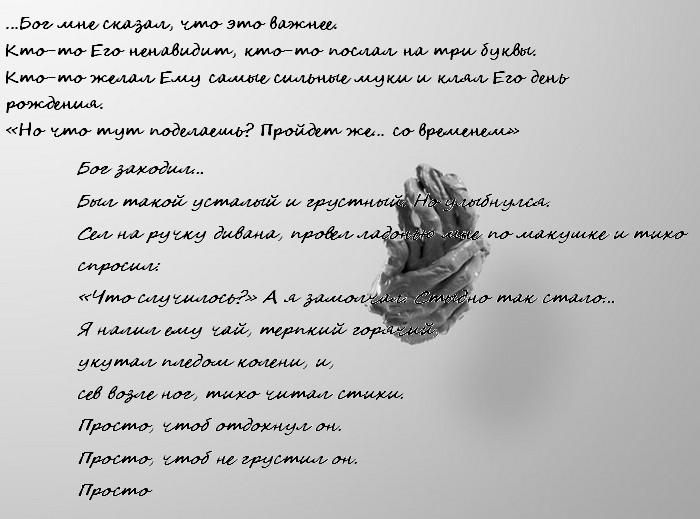 ...Бог мне сказал, что это важнее.
Кто-то Его ненавидит, кто-то послал на три буквы.
Кто-то желал Ему самые сильные муки и клял Его день
рождения.
«Но что тут поделаешь? Пройдет же... со временем»
Бог заходил...
Был такой усталый и грустный. Но улыбнулся.
Сел на ручку дивана, провел ладонью мне по макушке и тихо
спросил:
«Что случилось?» А я замолчал. Стыдно так стало...
Я налил ему чай, терпкий горячий,
укутал пледом колени, и,
сев возле ног, тихо читал стихи.
Просто, чтоб отдохнул он.
Просто, чтоб не грустил он.
Просто